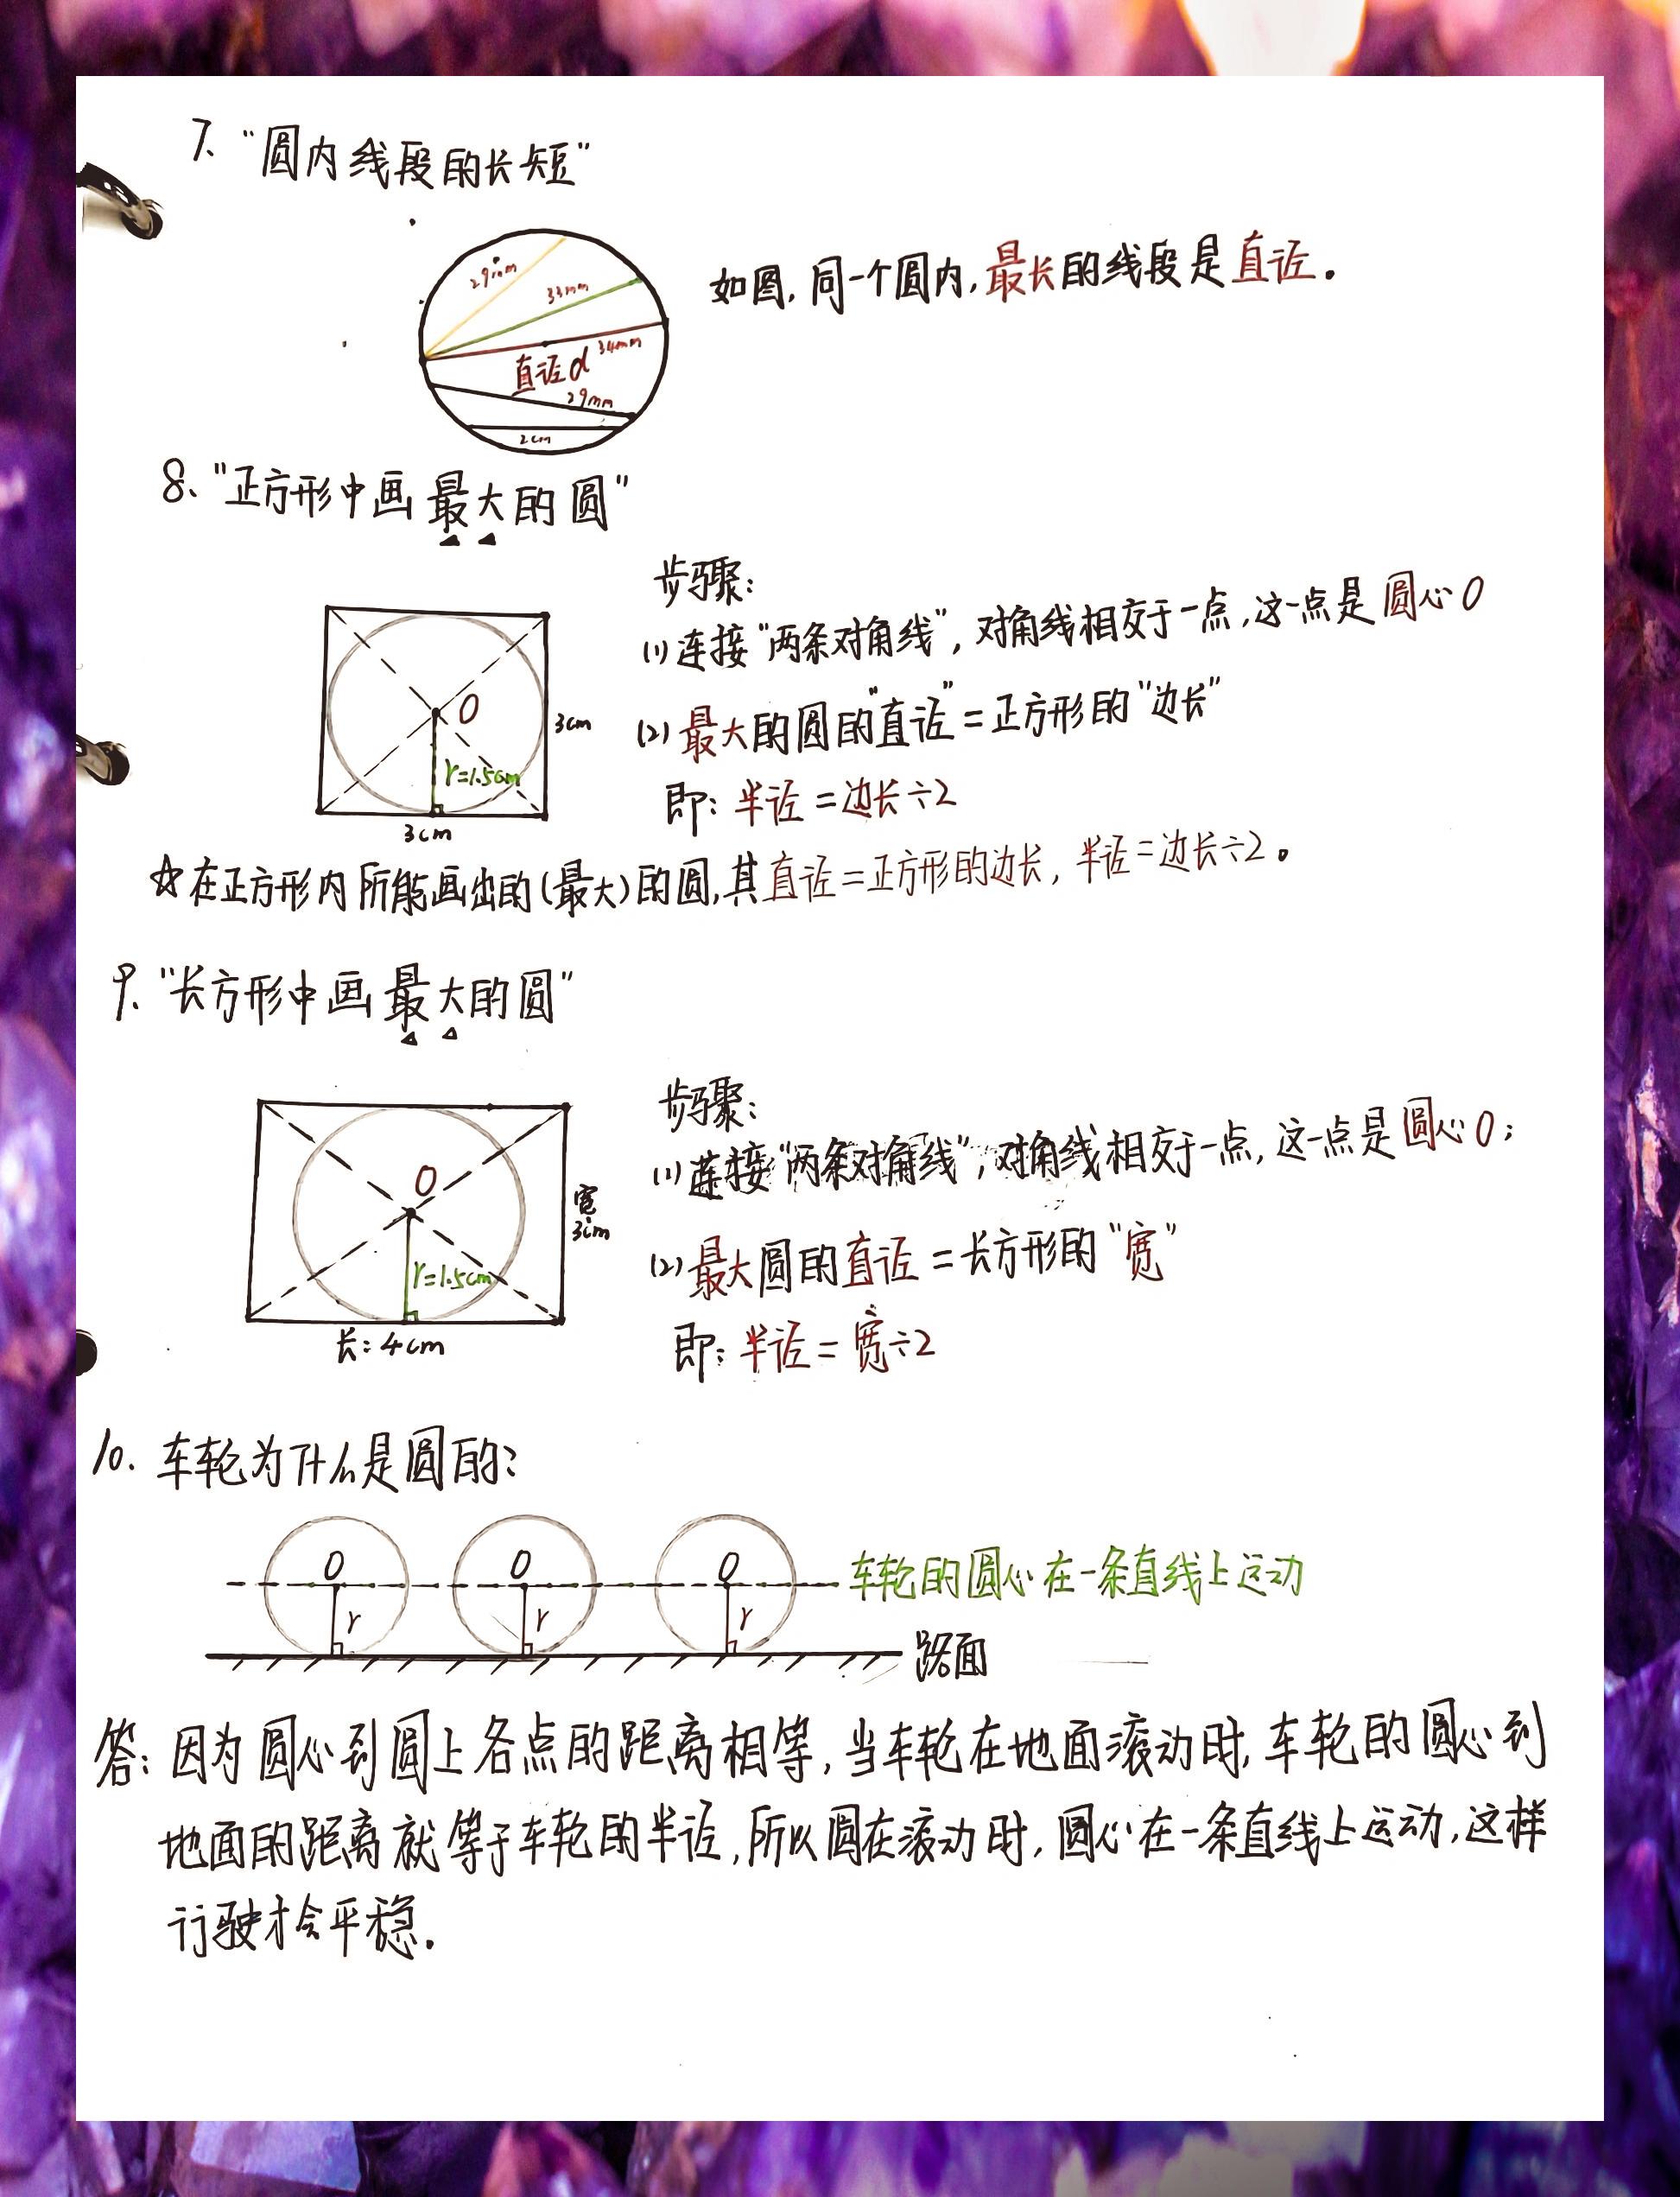 7、“圆内线段的长短”
29mm
33mm
如图,同一个圆内,最长的线段是直径.
34mm
直径d
29mm
2cm
8、“正方形中画最大的圆”
步骤:
(1)连接“两条对角线”,对角线相交于一点,这一点是圆心O
O
3cm
(2)最大的圆的“直径”=正方形的“边长”
r=1.5cm
即:半径=边长÷2
3cm
☆在正方形内所能画出的(最大)的圆,其直径=正方形的边长,半径=边长÷2。
9、“长方形中画最大的圆”
步骤:
(1)连接“两条对角线”,对角线相交于一点,这一点是圆心O;
O
宽
3cm
(2)最大圆的直径=长方形的“宽”
r=1.5cm
长:4cm
即:半径=宽÷2
10.车轮为什么是圆的?
O O O
车轮的圆心在一条直线上运动
r r r
路面
答:因为圆心到圆上各点的距离相等,当车轮在地面滚动时,车轮的圆心到
地面的距离就等于车轮的半径,所以圆在滚动时,圆心在一条直线上运动,这样
行驶才会平稳.